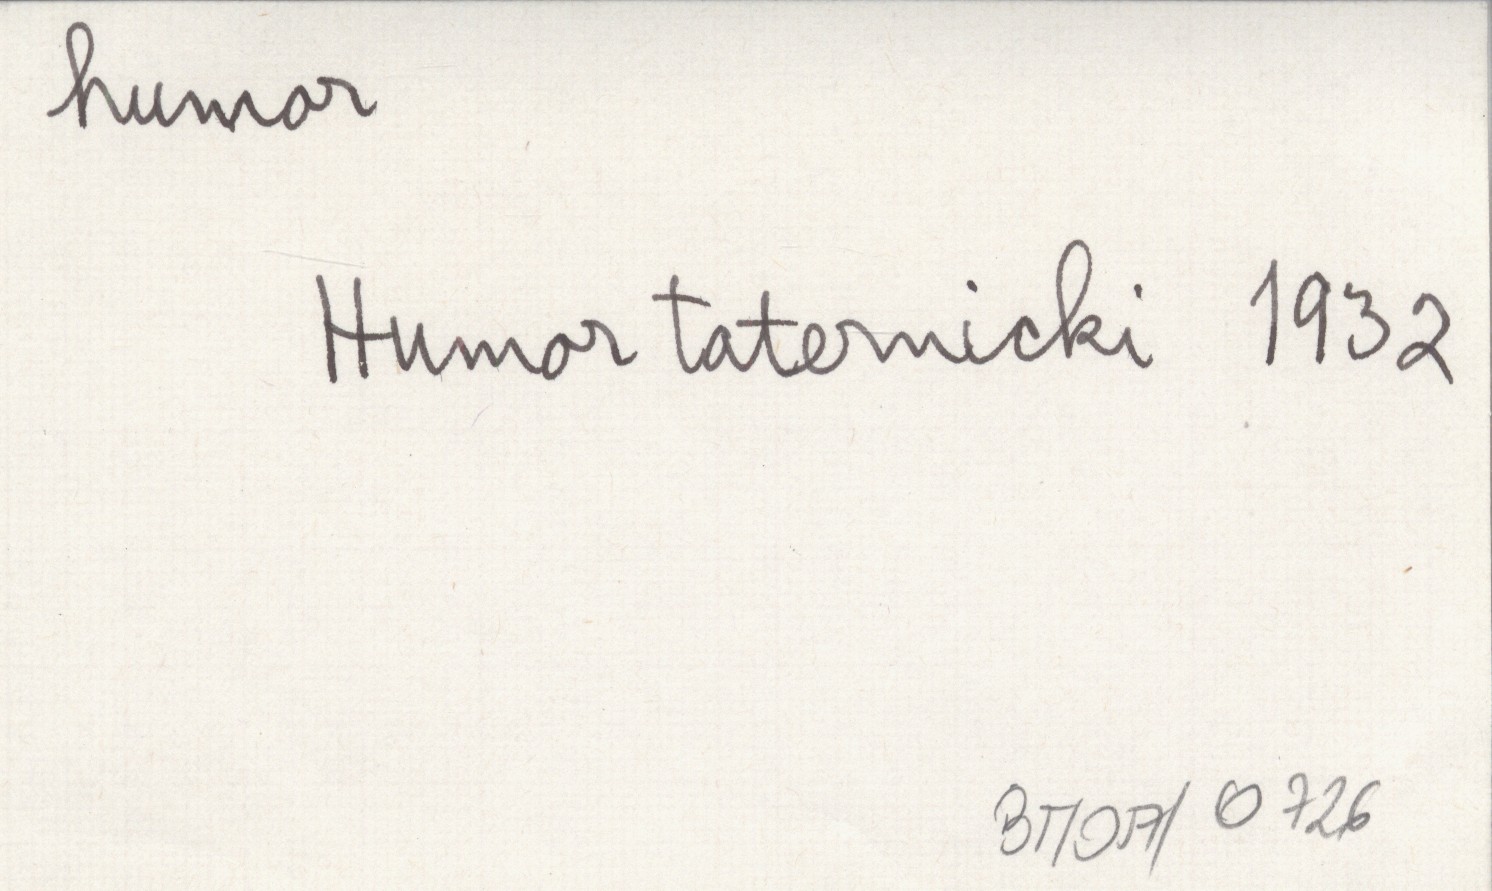 humor
Humor taternicki 1932
0726